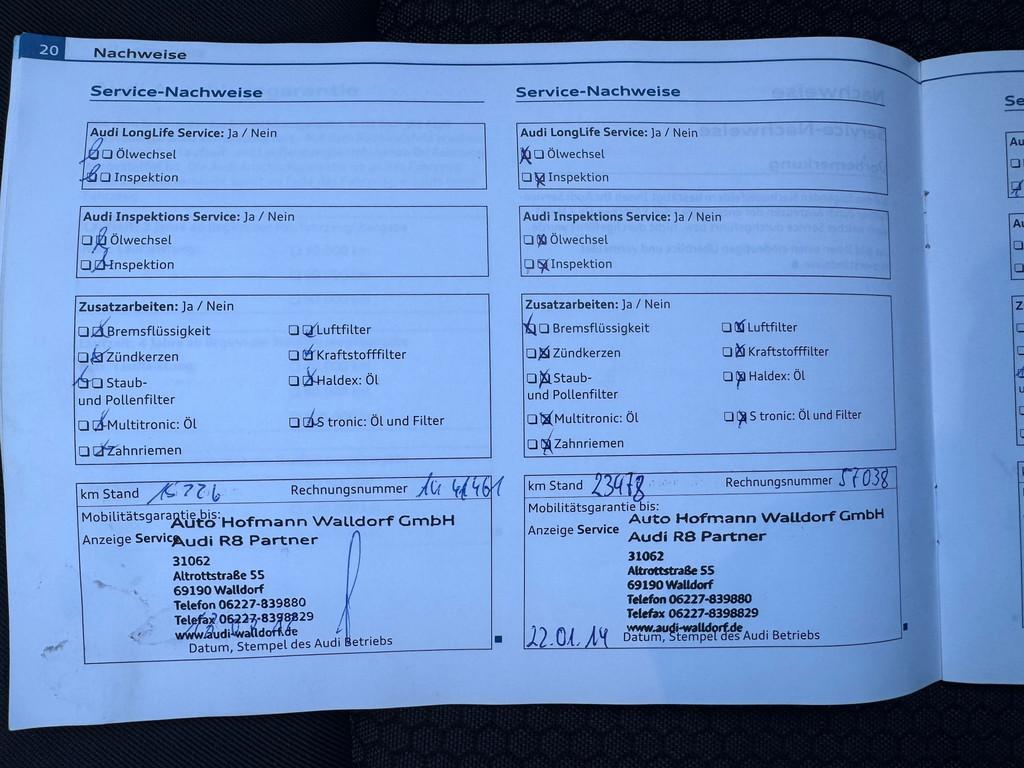 20 Nachweise
Service-Nachweise
Audi LongLife Service: Ja / Nein
Ölwechsel
Inspektion
Audi Inspektions Service: Ja / Nein
Ölwechsel
Inspektion
Zusatzarbeiten: Ja / Nein
Bremsflüssigkeit Luftfilter
Zündkerzen Kraftstofffilter
Staub- Haldex: Öl
und Pollenfilter
Multitronic: Öl S tronic: Öl und Filter
Zahnriemen
km Stand Rechnungsnummer
Mobilitätsgarantie bis:
Auto Hofmann Walldorf GmbH
Anzeige Service
Audi R8 Partner
31062
Altrottstraße 55
69190 Walldorf
Telefon 06227-839880
Telefax 06227-8398829
www.audi-walldorf.de
Datum, Stempel des Audi Betriebs
Service-Nachweise
Audi LongLife Service: Ja / Nein
Ölwechsel
Inspektion
Audi Inspektions Service: Ja / Nein
Ölwechsel
Inspektion
Zusatzarbeiten: Ja / Nein
Bremsflüssigkeit Luftfilter
Zündkerzen Kraftstofffilter
Staub- Haldex: Öl
und Pollenfilter
Multitronic: Öl S tronic: Öl und Filter
Zahnriemen
km Stand 23478 Rechnungsnummer 57038
Mobilitätsgarantie bis:
Auto Hofmann Walldorf GmbH
Anzeige Service
Audi R8 Partner
31062
Altrottstraße 55
69190 Walldorf
Telefon 06227-839880
Telefax 06227-8398829
www.audi-walldorf.de
22.01.14 Datum, Stempel des Audi Betriebs